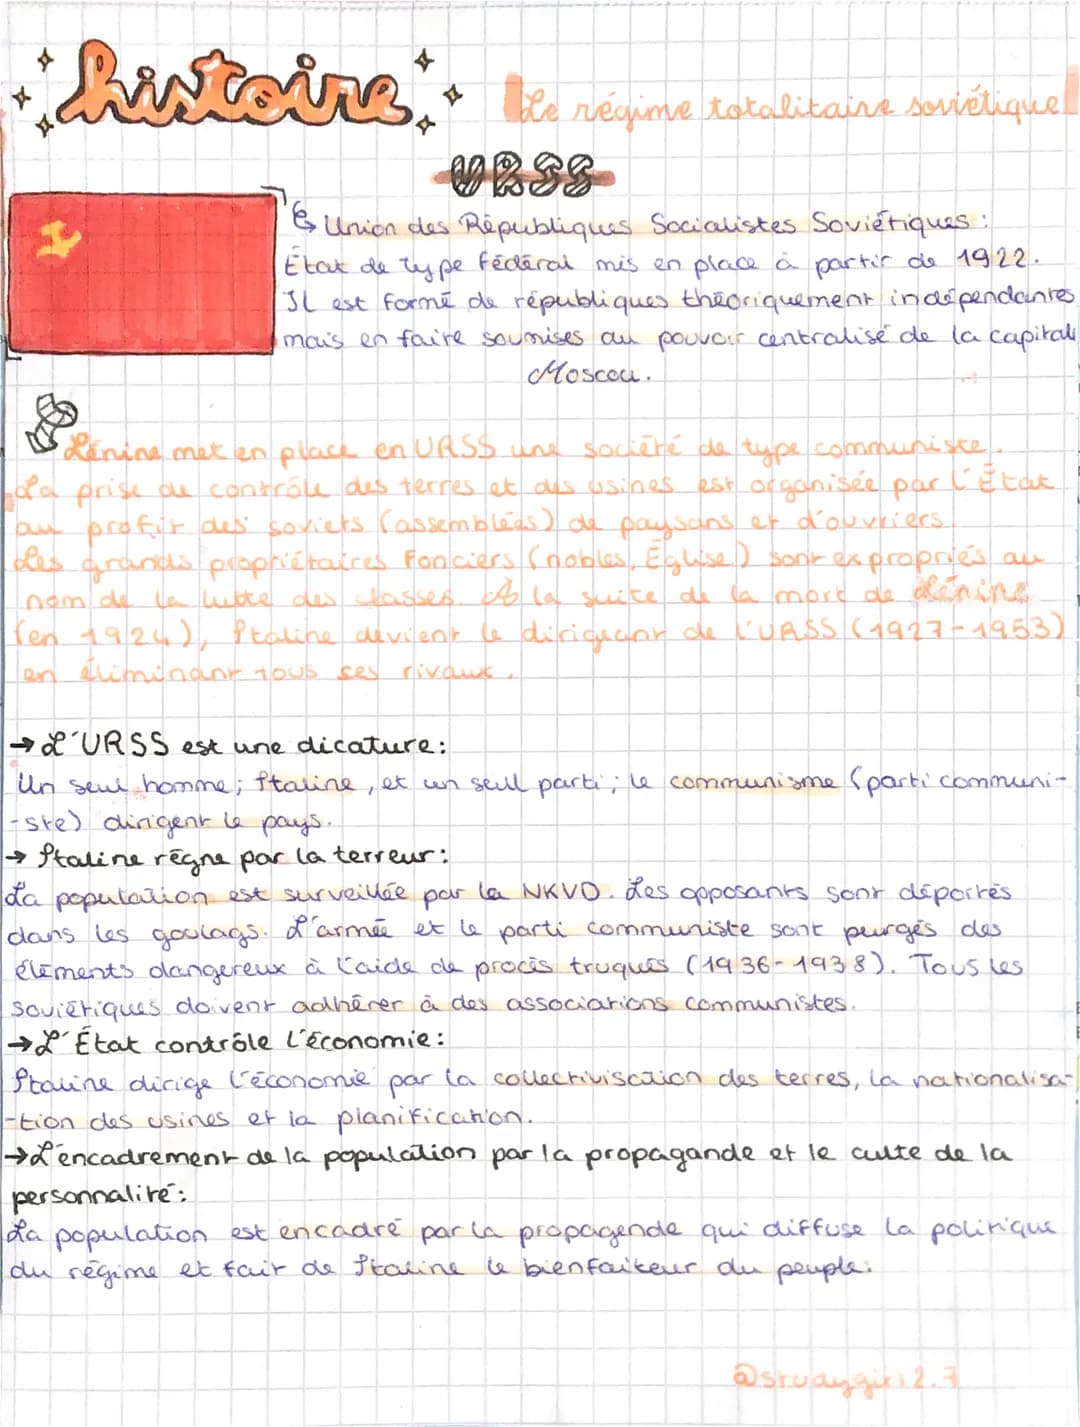 histoire
Le régime totalitaire soviétique
URSS
Union des Républiques Socialistes Soviétiques :
État de type fédéral mis en place à partir de 1922.
Il est formé de républiques théoriquement indépendantes
mais en faite soumises au pouvoir centralisé de la capitale
Moscou.
Lénine met en place en URSS une société de type communiste.
La prise de contrôle des terres et des usines est organisée par l'État
au profit des soviets (assemblées) de paysans et d'ouvriers.
Les grands propriétaires fonciers (nobles, Église) sont expropriés au
nom de la lutte des classes. À la suite de la mort de Lénine
(en 1924), Staline devient le dirigeant de l'URSS (1927-1953)
en éliminant tous ses rivaux.
→ L'URSS est une dicature :
Un seul homme; Staline, et un seul parti; le communisme (parti communi-
-ste) dirigent le pays.
→ Staline règne par la terreur :
La population est surveillée par la NKVD. Les opposants sont déportés
dans les goulags. L'armée et le parti communiste sont purgés des
éléments dangereux à l'aide de procès truqués (1936-1938). Tous les
soviétiques doivent adhérer à des associations communistes.
→ L'État contrôle l'économie :
Staline dirige l'économie par la collectivisation des terres, la nationalisa-
-tion des usines et la planification.
→ L'encadrement de la population par la propagande et le culte de la
personnalité :
La population est encadré par la propagende qui diffuse la politique
du régime et fait de Staline le bienfaiteur du peuple.
@studygirl2.7